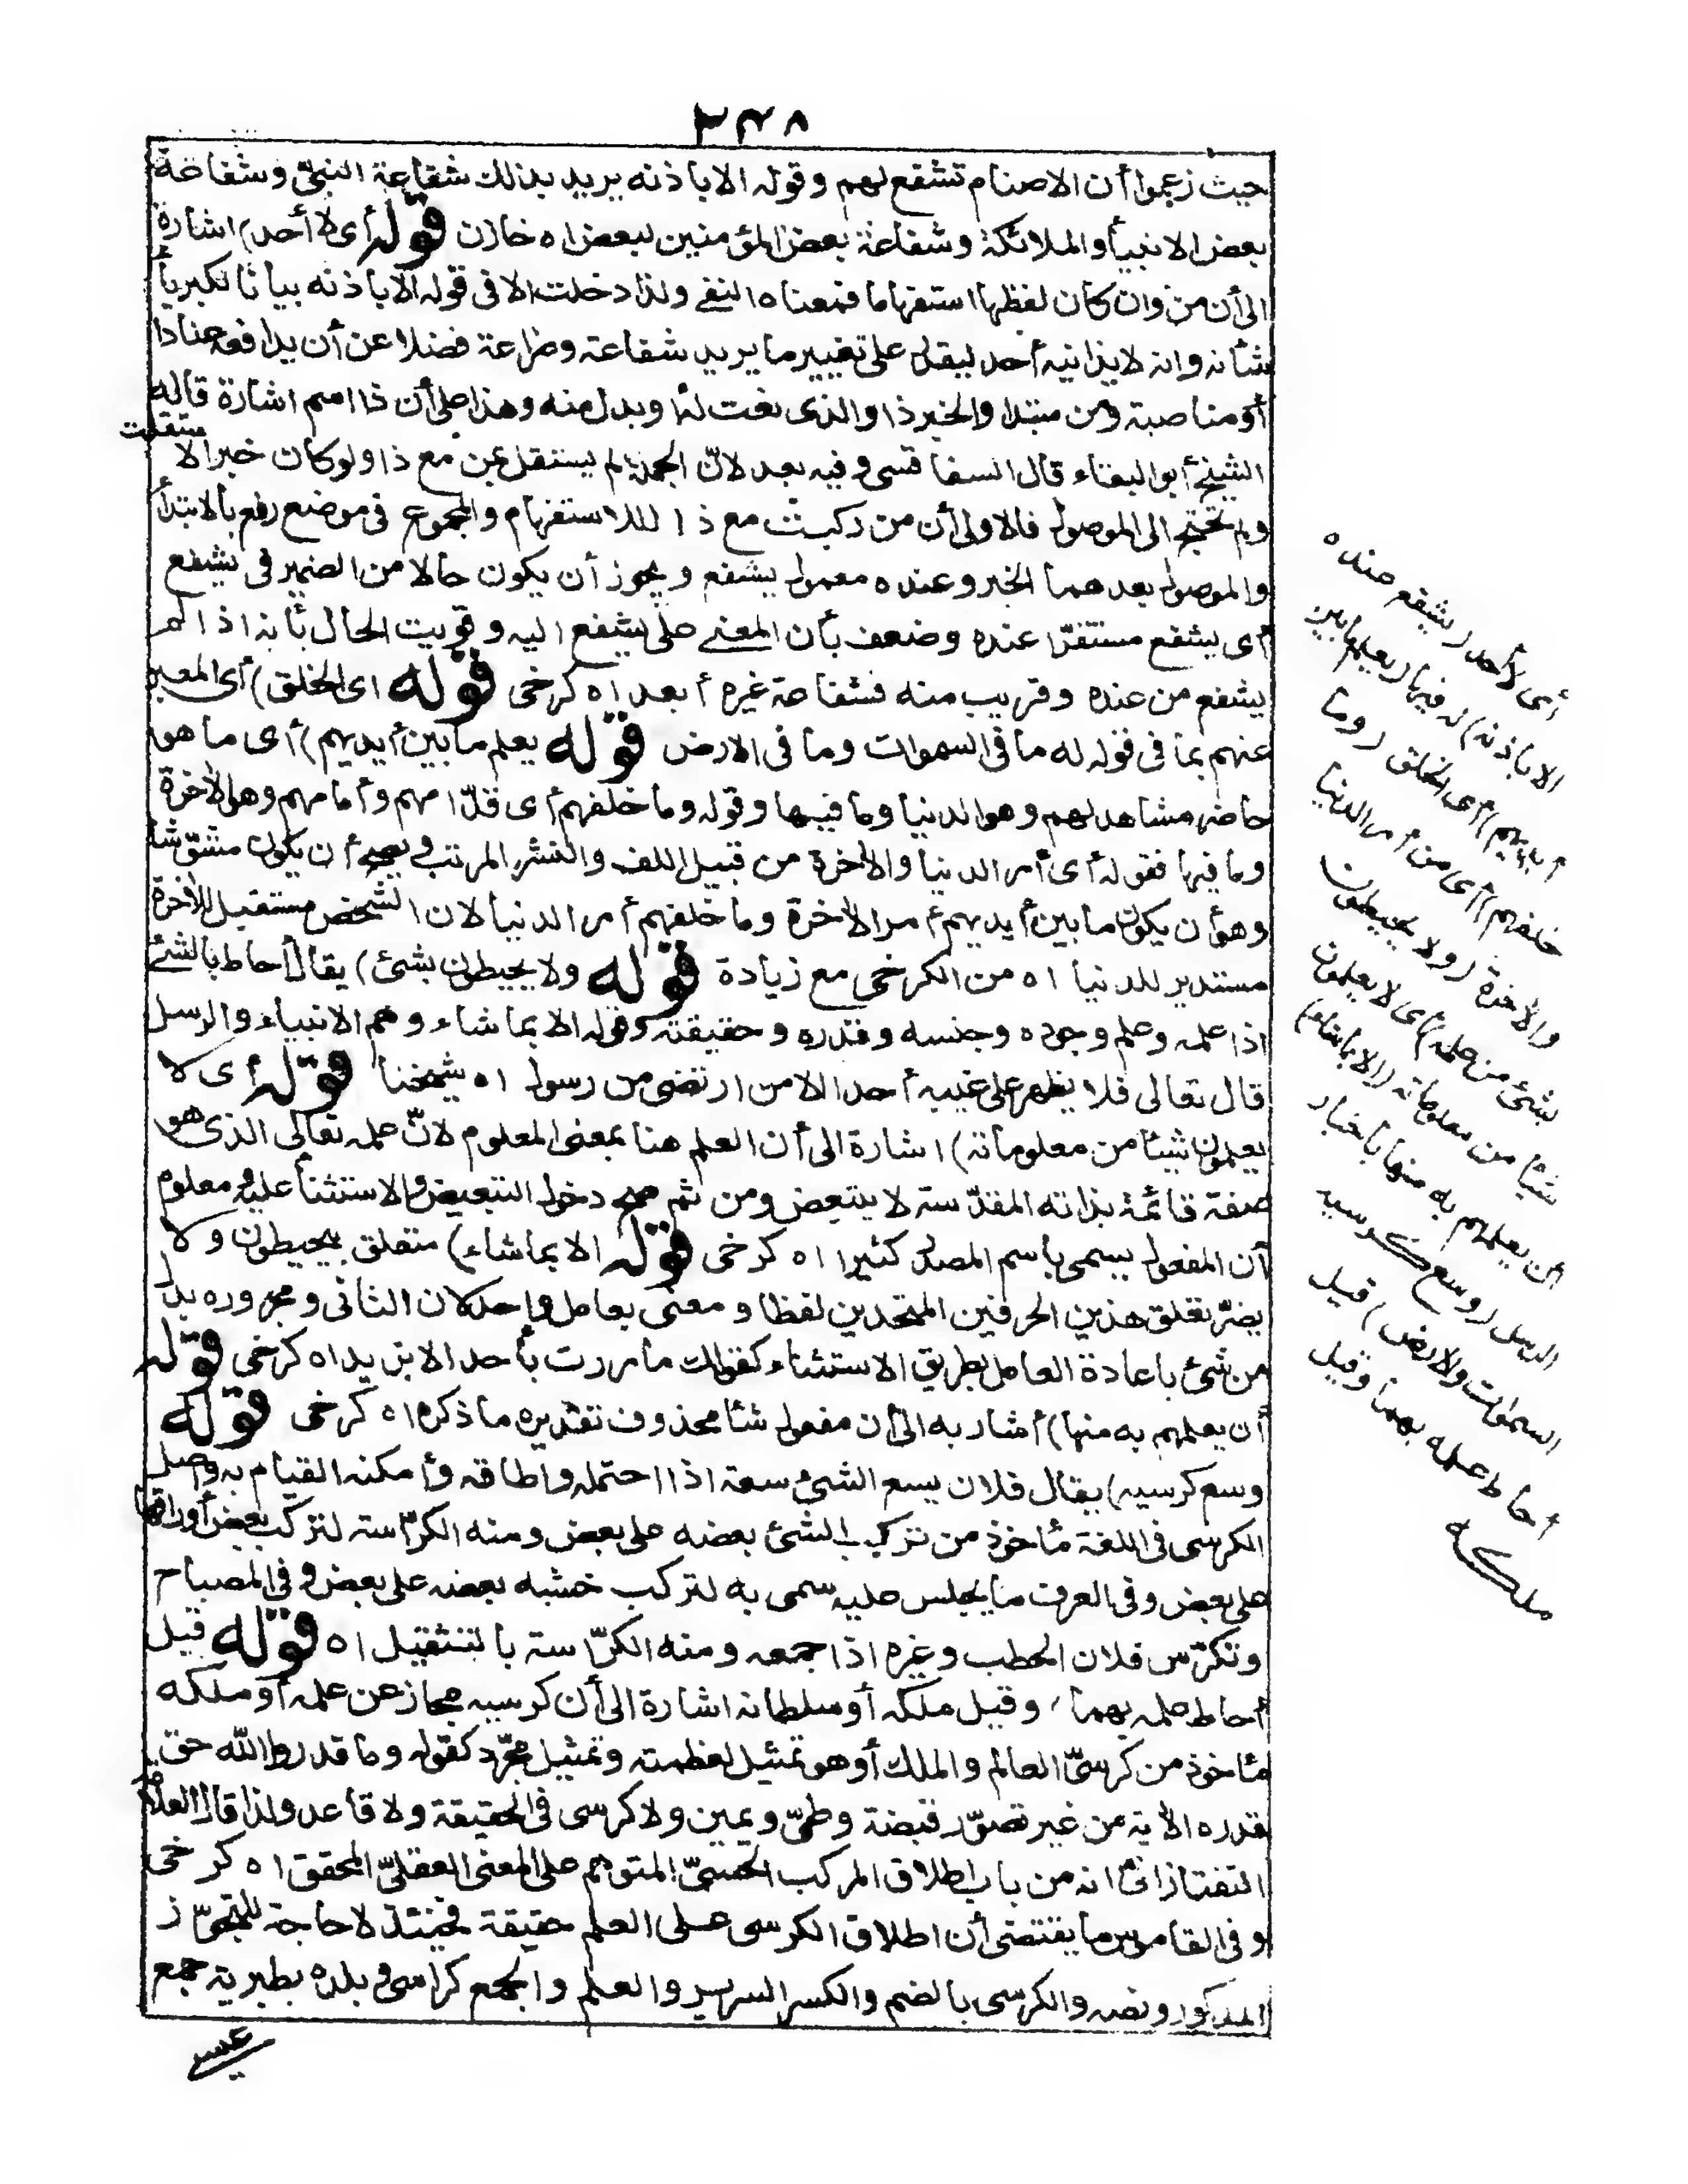 ٣٤٨
حيث زعموا أن الاصنام تشفع لهم وقوله الا باذنه يريد بذلك شفاعة النبيّ وشفاعة
بعض الانبيأ والملائكة وشفاعة بعض المؤمنين لبعض اه خازن قوله أى لا أحد) اشارة
الى أن من وان كان لفظها استفهاما فمعناه النفى ولذا دخلت الا فى قوله الا باذنه بيانا لكبريأ
شأنه وانه لا يدانيه أحد ليقدر على تغيير ما يريد شفاعة وضراعة فضلا عن أن يدافعه عنادا
أو مناصبة ومن مبتدا والخبر ذا والذى نعت له أو بدل منه وهذا على أن ذا اسم اشارة قاله
الشيخ أبو البقاء قال السفاقسى وفيه بعد لانّ الجملة لم يستقل عن مع ذا ولو كان خبرا لا ستقلت
ولم تحتج الى الموصول فالاولى أن من ركبت مع ذا للاستفهام والمجموع فى موضع رفع بالابتدأ
والموصول بعدهما الخبر وعنده معمول يشفع ويجوز أن يكون حالا من الضمير فى يشفع
أى يشفع مستقرّا عنده وضعف بأن المعنى على يشفع اليه وقويت الحال بأنه اذا لم
يشفع من عنده وقريب منه فشفاعة غيره أبعد اه كرخى قوله اى الخلق) أى المعبر
عنهم بما فى قوله له ما فى السموات وما فى الارض قوله يعلم ما بين أيديهم) أى ما هو
حاضر مشاهد لهم وهو الدنيا وما فيها وقوله وما خلفهم أى قدّامهم وأمامهم وهو الأخرة
وما فيها فقوله أى أمر الدنيا والأخرة من قبيل اللف والنشر المرتب ويصح أن يكون مشوّشا
وهو أن يكون ما بين أيديهم أمر الأخرة وما خلفهم أمر الدنيا لان الشخص مستقبل للأخرة
مستدير للدنيا اه من الكرخى مع زيادة قوله ولا يحيطون بشئ) يقال أحاط بالشئ
اذا علمه وعلم وجوده وجنسه وقدره وحقيقته وقوله الا بما شاء وهم الانبياء والرسل
قال تعالى فلا يظهر على غيبه أحدا الا من ارتضى من رسول اه شيخنا قوله أى لا
يعلمون شيئا من معلوماته) اشارة الى أن العلم هنا بمعنى المعلوم لانّ علمه تعالى الذى هو
صفة قائمة بذاته المقدّسة لا يتبعض ومن ثم صح دخول التبعيض والاستثنأ عليه ومعلوم
أن المفعول يسمى باسم المصدر كثيرا اه كرخى قوله الا بما شاء) متعلق بيحيطون ولا
يضرّ تعلق هذين الحرفين المتحدين لفظا ومعنى بعامل واحد لان الثانى ومجروره بدل
من شئ باعادة العامل بطريق الاستثناء كقولك ما مررت بأحد الا بزيد اه كرخى قوله
أن يعلمهم به منها) أشار به الى أن مفعول شأ محذوف تقديره ما ذكره اه كرخى قوله
وسع كرسيه) يقال فلان يسع الشئ سعة اذا احتمله وأطاقه وأمكنه القيام به وأصل
الكرسى فى اللغة مأخوذ من تركب الشئ بعضه على بعض ومنه الكرّاسة لتركب بعض أوراقها
على بعض وفى العرف ما يجلس عليه سمى به لتركب خشبه بعضه على بعض وفى المصباح
وتكرّس فلان الحطب وغيره اذا جمعه ومنه الكرّاسة بالتثقيل اه قوله قيل
أحاط علمه بهما، وقيل ملكه أو سلطانه اشارة الى أن كرسيه مجاز عن علمه أو ملكه
مأخوذ من كرسىّ العالم والملك أو هو تمثيل لعظمته وتمثيل مجرّد كقوله وما قدروا اللّه حق
قدره الأية من غير تصوّر قبضة وطىّ ويمين ولا كرسى فى الحقيقة ولا قاعد ولذا قال العلامة
التفتازانى انه من باب اطلاق المركب الحسىّ المتوهم على المعنى العقلىّ المحقق اه كرخى
وفى القاموس ما يقتضى أن اطلاق الكرسى على العلم حقيقة فحينئذ لا حاجة للتجوّز
المذكور ونصه والكرسى بالضم والكسر السرير والعلم والجمع كراسى وبلده بطبرية جمع
أى لا أحد (يشفع عنده
الا باذنه) له فيها (يعلم ما بين
أيديهم) أى الخلق (وما
خلفهم) أى من أمر الدنيا
والأخرة (ولا يحيطون
بشئ من علمه) أى لا يعلمون
شيئا من معلوماته (الا بما شاء)
أن يعلمهم به منها باخبار
الرسل (وسع كرسيه
السموات والارض) قيل
أحاط علمه بهما وقيل
ملكه